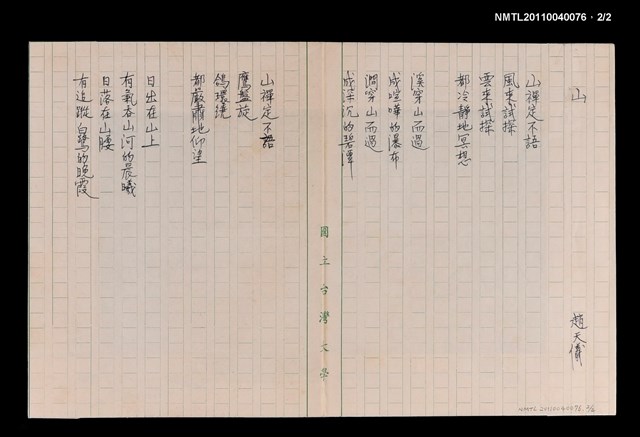 NMTL20110040076・2/2
山
趙天儀
山禪定不語
風來試探
雲來試探
都冷靜地冥想
溪穿山而過
成喧嘩的瀑布
澗穿山而過
成深沉的碧潭
國立台灣文學
山禪定不語
鷹盤旋
鴿環繞
都嚴肅地仰望
日出在山上
有氣吞山河的晨曦
日落在山腰
有追蹤白鷺的晚霞